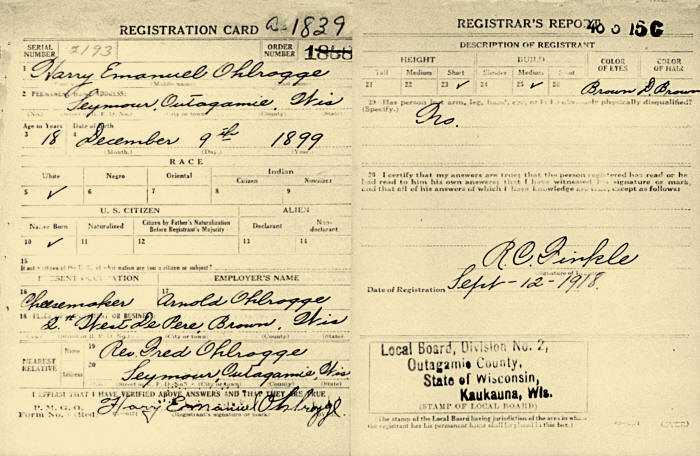 REGISTRATION CARD
a-1839
SERIAL NUMBER 2193
ORDER NUMBER 1838
1 Harry Emanuel Ohlrogge
(Middle name)
2 PERMANENT HOME ADDRESS:
Seymour, Outagamie, Wis
(No.) (City or town) (County) (State)
Age in Years Date of Birth
3 18 4 December 9th 1899
(Month.) (Day.) (Year.)
RACE
White Negro Oriental Indian
Citizen Noncitizen
5 ✓ 6 7 8 9
U. S. CITIZEN ALIEN
Native Born Naturalized Citizen by Father's Naturalization Before Registrant's Majority Declarant Non-declarant
10 ✓ 11 12 13 14
15
If not a citizen of the U. S., of what nation are you a citizen or subject?
PRESENT OCCUPATION EMPLOYER'S NAME
16 Cheesemaker 17 Arnold Ohlrogge
18 PLACE OF EMPLOYMENT OR BUSINESS:
West De Pere, Brown, Wis
(City or town) (County) (State)
NEAREST RELATIVE
Name 19 Rev. Fred Ohlrogge
Address 20 Seymour, Outagamie, Wis
(City or town) (County) (State)
I AFFIRM THAT I HAVE VERIFIED ABOVE ANSWERS AND THAT THEY ARE TRUE
P. M. G. O.
Form No. 1 (Red) Harry Emanuel Ohlrogge
(Registrant's signature)
REGISTRAR'S REPORT
DESCRIPTION OF REGISTRANT
HEIGHT BUILD COLOR OF EYES COLOR OF HAIR
Tall Medium Short Slender Medium Stout
21 22 23 ✓ 24 25 ✓ 26 Brown D Brown
29 Has person lost arm, leg, hand, eye, or is he obviously physically disqualified?
(Specify.)
No.
30 I certify that my answers are true; that the person registered has read or has
had read to him his own answers; that I have witnessed his signature or mark,
and that all of his answers of which I have knowledge are true, except as follows:
R.C. Finkle
Date of Registration Sept-12-1918
Local Board, Division No. 2,
Outagamie County,
State of Wisconsin,
Kaukauna, Wis.
(STAMP OF LOCAL BOARD)
(The stamp of the Local Board having jurisdiction of the area in which
the registrant has his permanent home shall be placed in this box.)
(OVER)